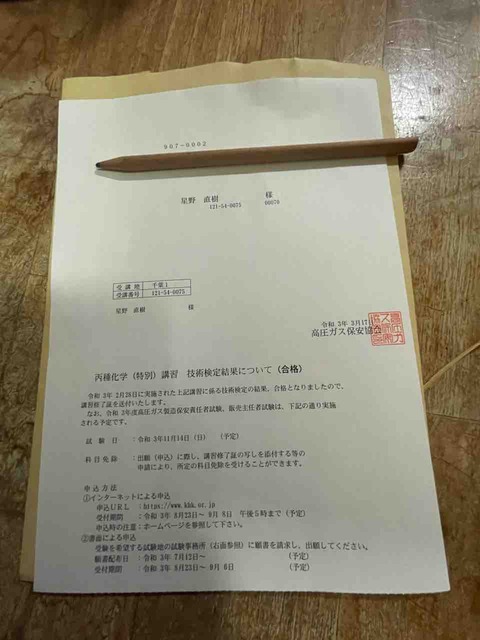 907-0002
星野　直樹　　　様
121-54-0075　　00070
受講地　千葉１
受講番号　121-54-0075
星野　直樹　　　様
令和 3年 3月17日
高圧ガス保安協会
丙種化学（特別）講習　技術検定結果について（合格）
令和 3年 2月26日に実施された上記講習に係る技術検定の結果、合格となりましたので、
講習修了証を送付いたします。
なお、令和 3年度高圧ガス製造保安責任者試験、販売主任者試験は、下記の通り実施
される予定です。
試　験　日　：令和 3年11月14日（日）　（予定）
科目免除　：出願（申込）に際し、講習修了証の写しを添付する等の
申請により、所定の科目免除を受けることができます。
申込方法
①インターネットによる申込
申込ＵＲＬ　：https://www.khk.or.jp
受付期間　：令和 3年 8月23日～ 9月 6日　午後５時まで（予定）
申込時の注意：ホームページを参照して下さい。
②書面による申込
受験を希望する試験地の試験事務所（右面参照）に願書を請求し、出願してください。
願書配布日　：令和 3年 7月12日～　（予定）
受付期間　：令和 3年 8月23日～ 9月 6日　（予定）